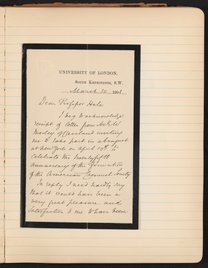 UNIVERSITY OF LONDON,
SOUTH KENSINGTON, S.W.
March 30, 1901.
Dear Professor Hale
I beg to acknowledge
receipt of letter from
of
me to take part in a banquet
at New York on April 12th to
celebrate the twentyfifth
Anniversary of the formation
of the American Chemical Society
In reply I need hardly say
that it would have been a
very great pleasure and
satisfaction to me to have been